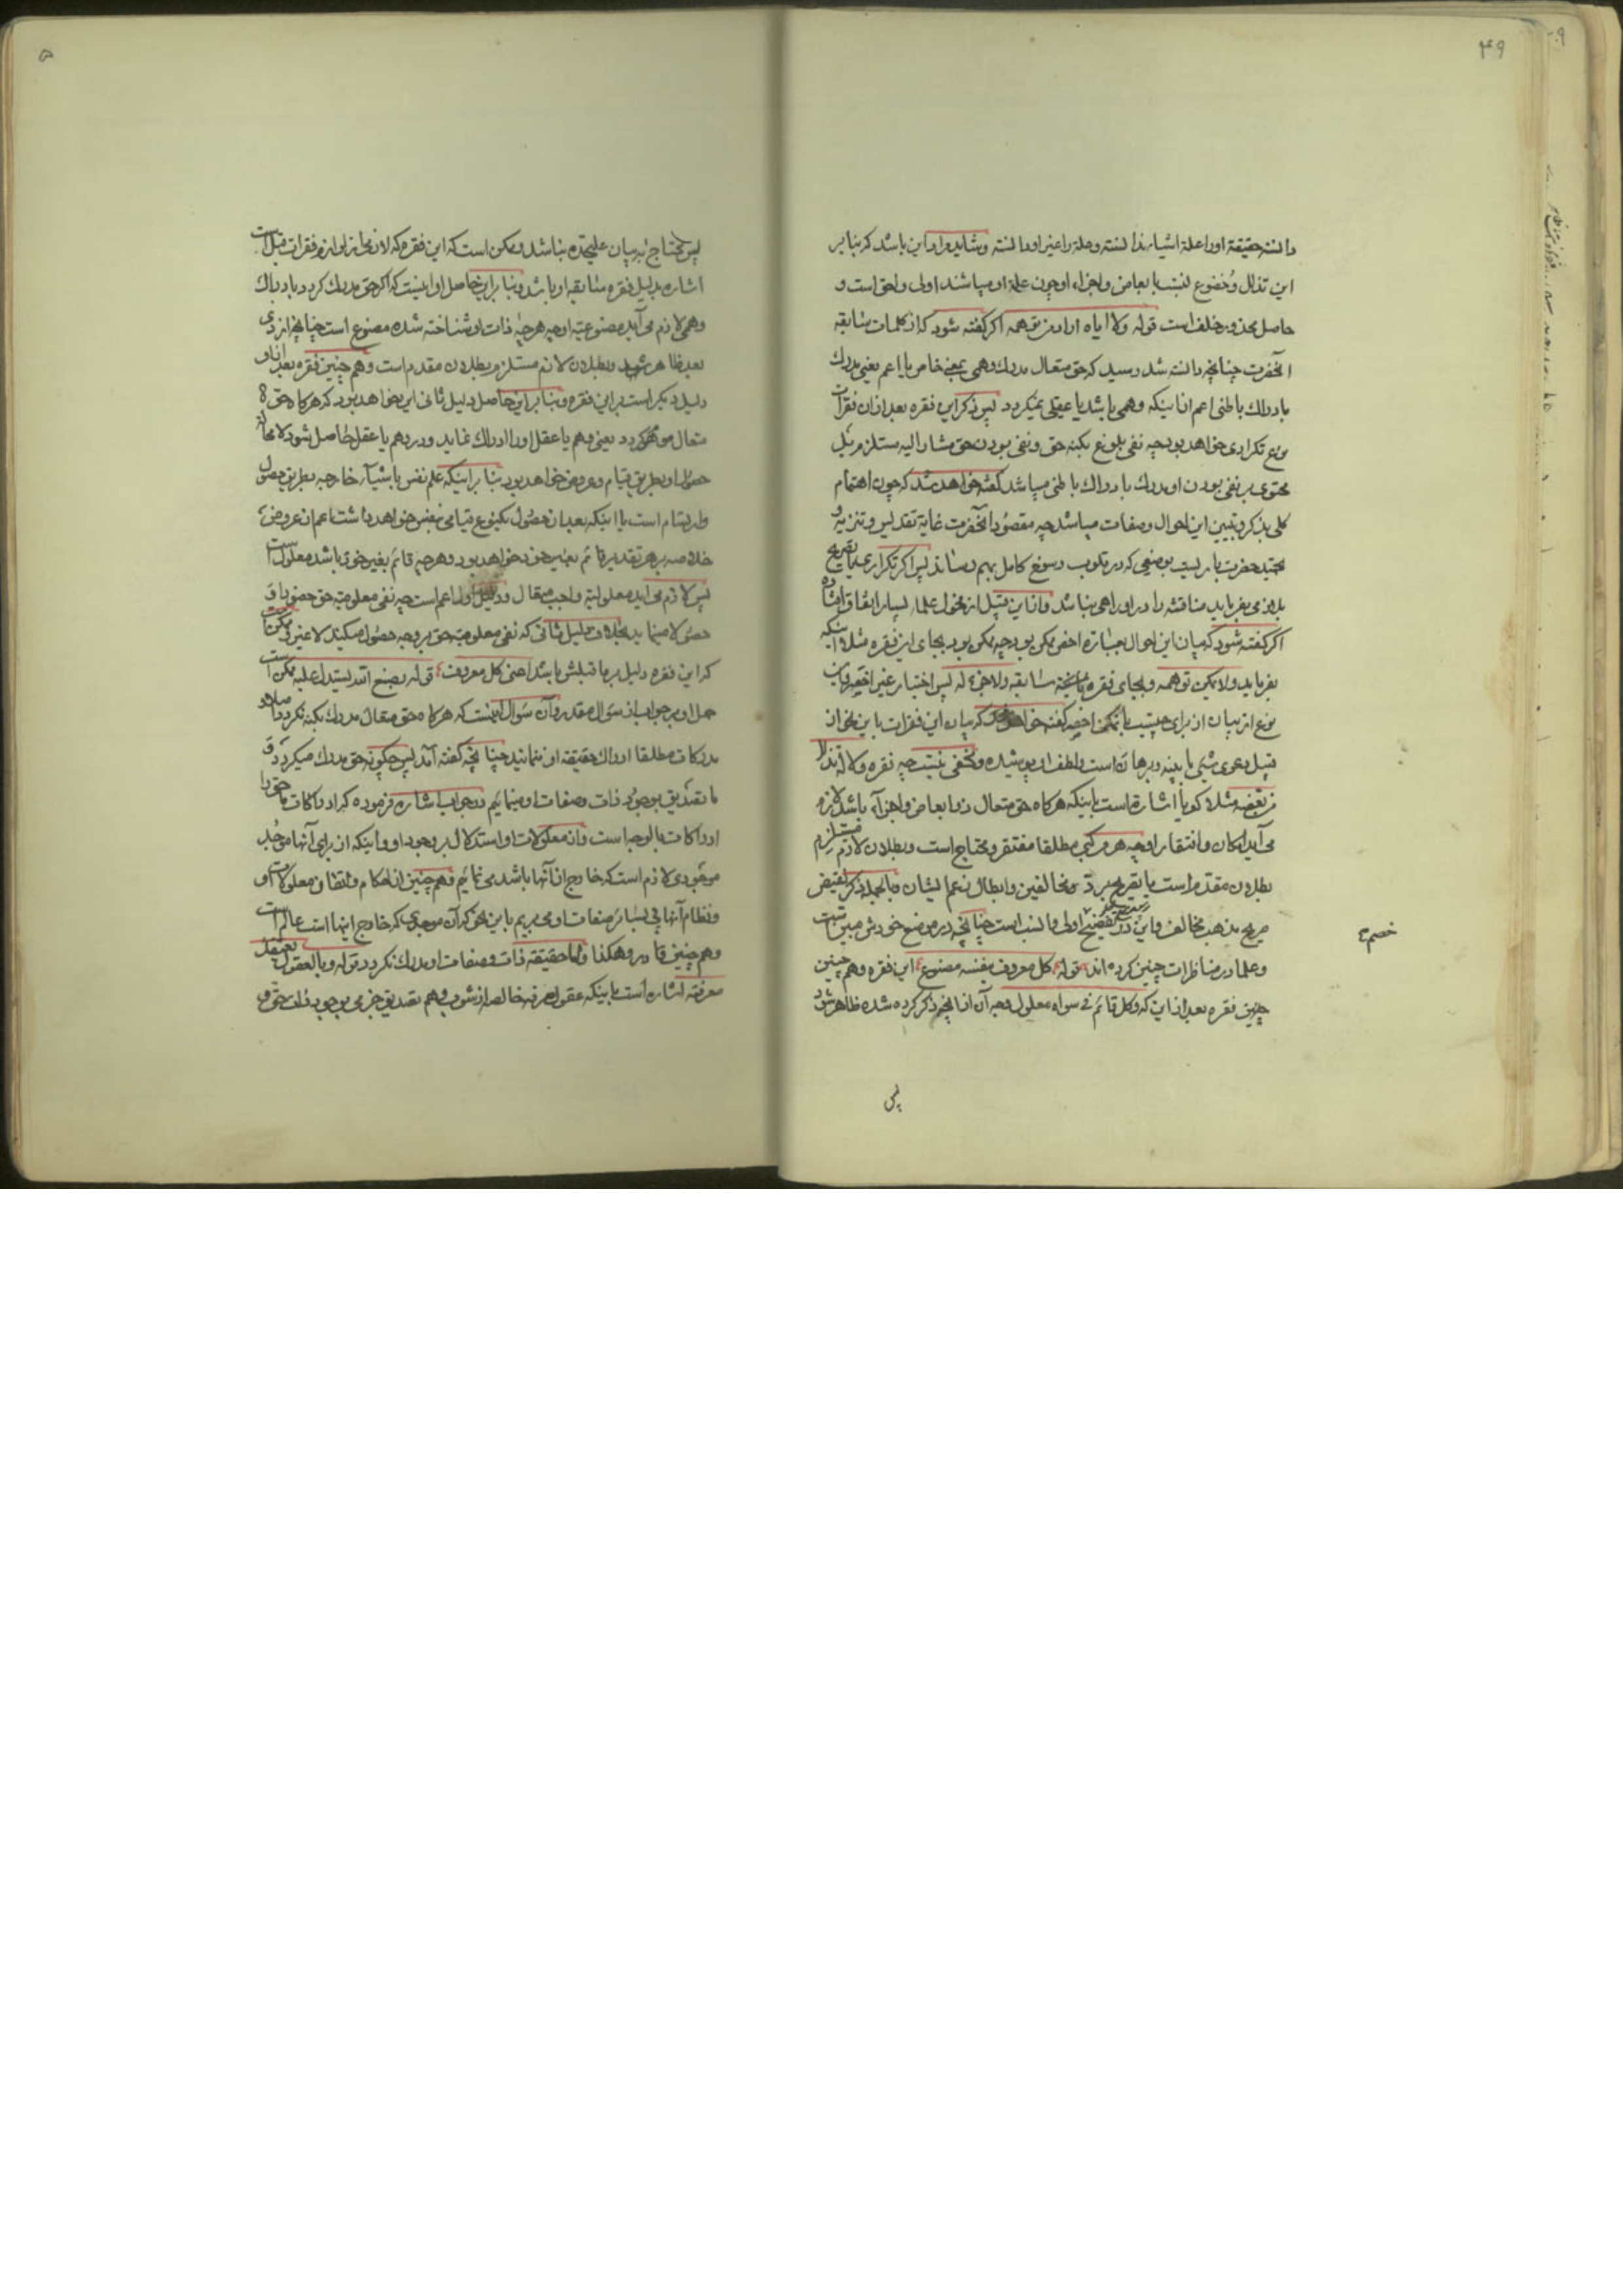 ۴۹
دانسته حقیقة او را علة اشیاء ندانسته وعلة را غیر او دانسته وشاید مراد این باشد که بنا بر
این تذلل وخضوع نسبت با بعاض واجزاء او چون علة او میباشند اولی واحق است و
حاصل محذور خلف است قوله ولا ایاه اراد من توهمه اگر گفته شود که از کلمات سابقه
آنحضرت چنانچه دانسته شد رسید که حق متعال مدرك وهمی بمعنی خاص یا اعم یعنی مدرك
بادراك باطنی اعم از اینکه وهمی باشد یا عقلی نمیگردد پس ذکر این فقره بعد از آن فقرات
نوع تکراری خواهد بود چه نفی بلوغ بکنه حق ونفی بودن حق مشار الیه مستلزم بل
محتوی بر نفی بودن او مدرك بادراك باطنی میباشد گفته خواهد شد که چون اهتمام
کلی بذکر وتبیین این احوال وصفات میباشد چه مقصود آنحضرت غایة تقدیس وتنزیه
حضرت باریست بوضعی که در قلوب رسوخ کامل بهم رساند پس اگر تکراری یا تصریح
بلازمی بفرماید مناقشه را در او راهی نباشد واز این قبیل از فحول علما بسیار اتفاق افتاده
اگر گفته شود که بیان این احوال بعبارة اخصر ممکن بود چه ممکن بود بجای این فقره مثلا اینکه
بفرماید ولا یمکن توهمه وبجای فقره سابقه ولا جزء له پس اختیار غیر اخصر واین
نوع از بیان از برای چیست با تمکن اخصر گفته خواهد شد که بیان این فقرات باین نحو از
قبیل دعوی شیء با بینه وبرهان است ولطف او پوشیده ومخفی نیست چه فقره ولا له تذلل
من بعضه مثلا گویا اشاره است باینکه هرگاه حق متعال ذو ابعاض واجزاء باشد لازم
می آید امکان وافتقار او چه هر مرکبی مطلقا مفتقر ومحتاج است وبطلان لازم مستلزم
بطلان مقدم است یا تصریح برد مخالفین وابطال زعم ایشان وبالجمله ذکر نقیض
صریح مذهب مخالف واین در تفضیح اولی وانسب است چنانچه در موضع خودش مبین است
خصم
وعلما در مناظرات چنین کرده اند قوله ع کل معروف بنفسه مصنوع این فقره وهم چنین
چنین فقره بعد از این که وکل قائم فی سواه معلول وجه آن از آنچه ذکر کرده شده ظاهر شود
پس
پس محتاج به بیان علیحده نباشد وممکن است که این فقره که لازم از لوازم فقرات قبل است
اشاره بدلیل فقره سابقه او باشد وبنا بر این حاصل او اینست که اگر حق مدرك گردد بادراك
وهمی لازم می آید مصنوعیة او چه هر چه ذات او شناخته شده مصنوع است چنانچه از دی
بعد ظاهر شود وبطلان لازم مستلزم بطلان مقدم است وهم چنین فقره بعد از او
دلیل دیگر است بر این فقره وبنا بر این حاصل دلیل ثانی این خواهد بود که هرگاه حق
متعال موهوم گردد یعنی وهم یا عقل او را ادراك نماید ودر وهم یا عقل حاصل شود لا محاله
حصول او بطریق قیام وعروض خواهد بود بنا بر اینکه علم نفس باشیاء خارجیه بطریق حصول
وارتسام است یا اینکه بعد از حصول یکنوع قیامی بنفس خواهد داشت اعم از عروض
خلاصه بر هر تقدیر قائم بغیر خود خواهد بود وهر چه قائم بغیر خود باشد معلول است
پس لازم می آید معلولیة واجب متعال ودلیل اول اعم است چه نفی معلومیة حق حضورا و
حصولا مینماید بخلاف دلیل ثانی که نفی معلومیة حق بر وجه حصول میکند لا غیر وممکن است
که این فقره دلیل بر ما قبلش باشد اعنی کل معروف قوله ع بصنع الله یستدل علیه ممکن است
حمل او بر جواب از سؤال مقدر وآن سؤال اینست که هرگاه حق متعال مدرك بکنه نگردد
مدرکات مطلقا ادراك حقیقة او ننمایند چنانچه گفته آمد پس چگونه حق مدرك میگردد و
ما تصدیق بوجود ذات وصفات او مینمائیم در جواب اشاره فرموده که ادراکات ما حق را
ادراکات بالوجه است واز معلولات او استدلال بر وجود او واینکه از برای آنها موجد
موجودی لازم است که خارج از آنها باشد می نمائیم وهم چنین از احکام واتقان معلولات او
ونظام آنها پی بسایر صفات او میبریم باین نحو که آن موجدی که خارج اینها است عالم است
وهم چنین قادر وهکذا واما حقیقة ذات وصفات او مدرك نگردد قوله وبالعقول یعتقد
معرفته اشاره است باینکه عقول صرفه خالصه از شوب وهم تصدیق جزمی بوجود ذات حق و